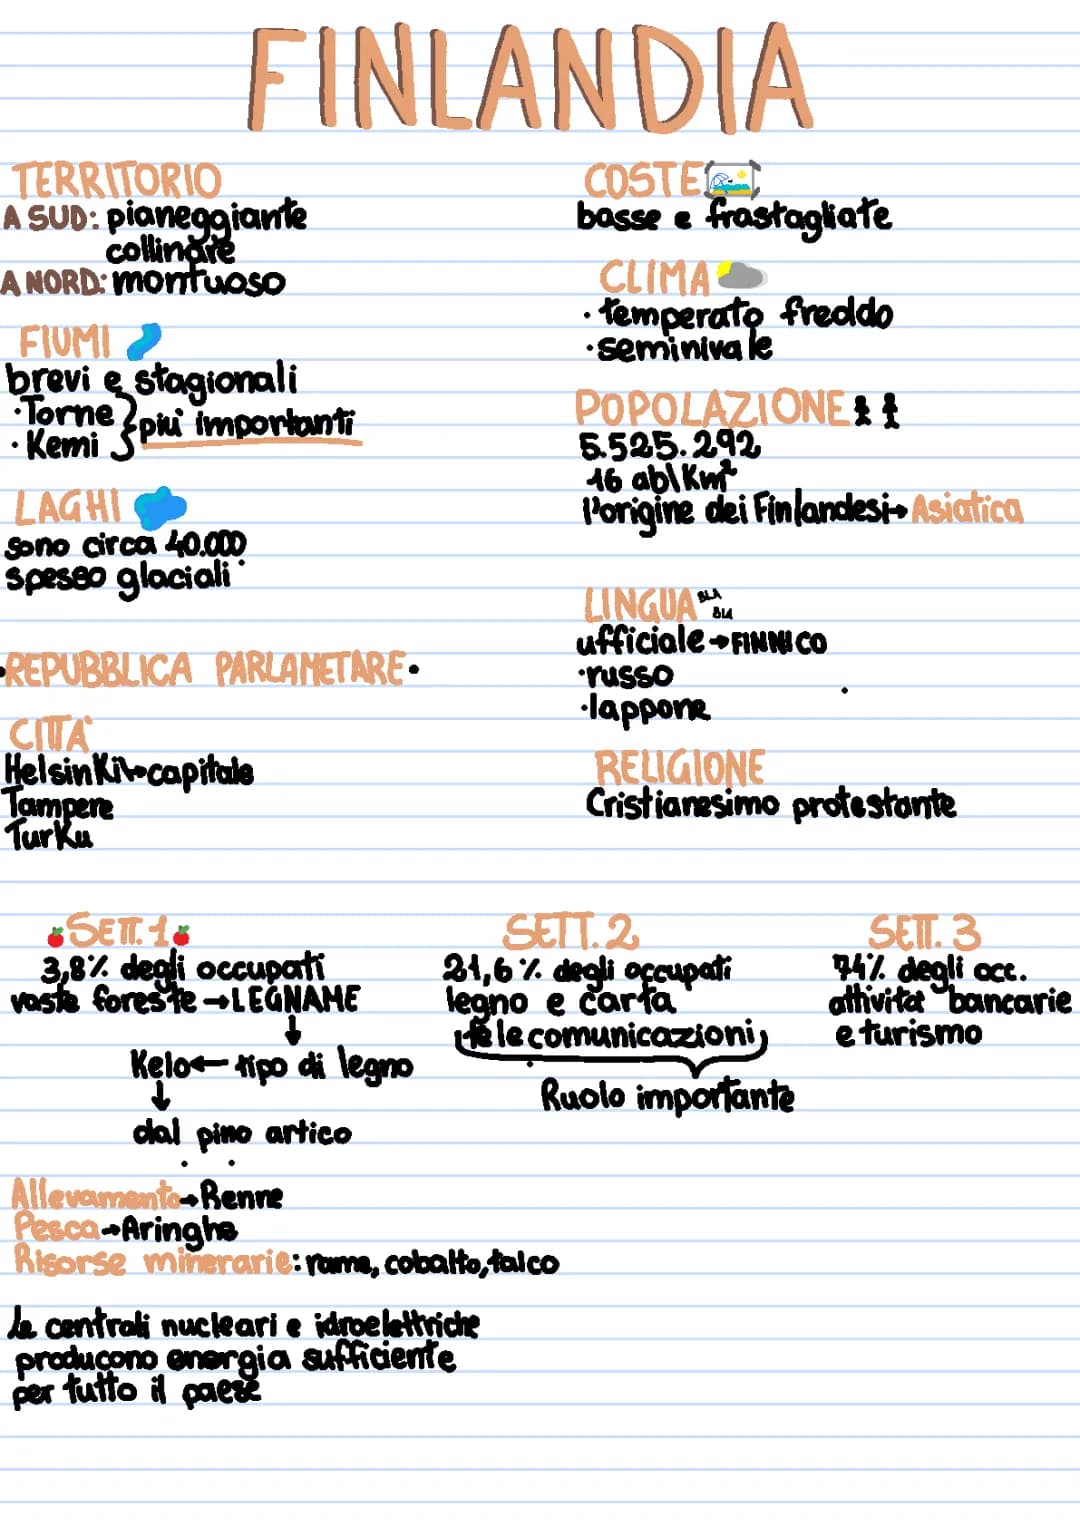 FINLANDIA
TERRITORIO
A SUD: pianeggiante
collinare
A NORD: montuoso
FIUMI
brevi e stagionali
·Torne
·Kemi
più importanti
LAGHI
sono circa 40.000
spesso glaciali
·REPUBBLICA PARLAMETARE·
CITTA'
Helsinki→capitale
Tampere
Turku
COSTE
basse e frastagliate
CLIMA
·temperato freddo
·seminivale
POPOLAZIONE
5.525.292
16 ab\Km²
l'origine dei Finlandesi→Asiatica
LINGUA BLA
BLA
ufficiale→FINNICO
·russo
·lappone
RELIGIONE
Cristianesimo protestante
SETT. 1
3,8% degli occupati
vaste foreste→LEGNAME
↓
Kelo←tipo di legno
↓
dal pino artico
SETT. 2
21,6% degli occupati
legno e carta
telecomunicazioni
Ruolo importante
SETT. 3
74% degli occ.
attività bancarie
e turismo
Allevamento→Renne
Pesca→Aringhe
Risorse minerarie: rame, cobalto, talco
le centrali nucleari e idroelettriche
producono energia sufficiente
per tutto il paese